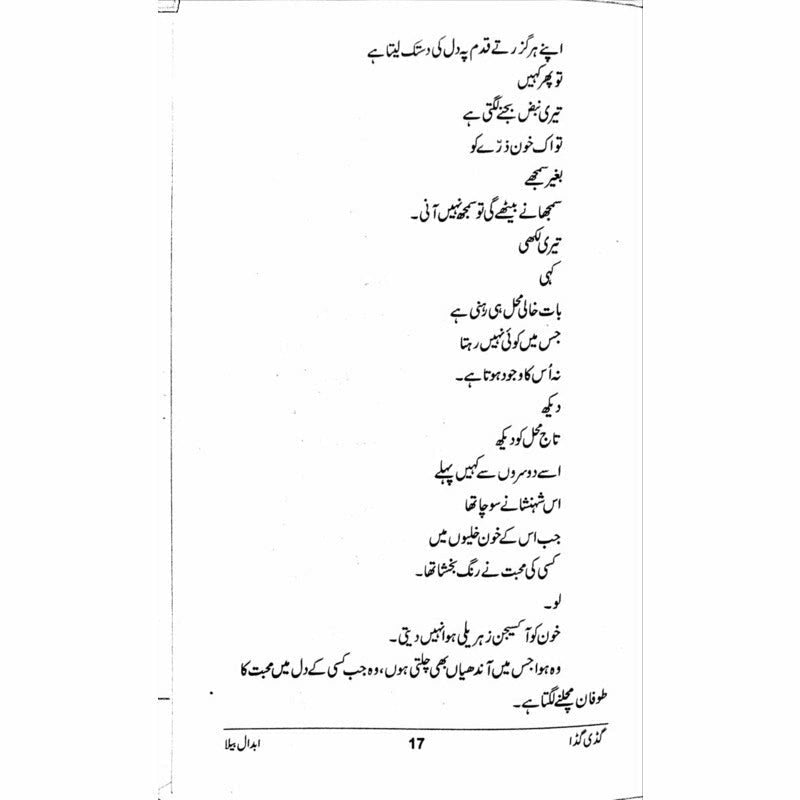 اپنے ہر گزرتے قدم پہ دل کی دستک لیتا ہے
تو پھر کہیں
تیری نبض بجنے لگتی ہے
تو اک خون ذرّے کو
بغیر سمجھے
سمجھانے بیٹھے گی تو سمجھ نہیں آنی ۔
تیری لکھی
کہی
بات خالی محل ہی رہنی ہے
جس میں کوئی نہیں رہتا
نہ اُس کا وجود ہوتا ہے ۔
دیکھ
تاج محل کو دیکھ
اسے دوسروں سے کہیں پہلے
اس شہنشا نے سوچا تھا
جب اس کے خون خلیوں میں
کسی کی محبت نے رنگ بخشا تھا ۔
لو ۔
خون کو آکسیجن زہریلی ہوا نہیں دیتی ۔
وہ ہوا جس میں آندھیاں بھی چلتی ہوں ، وہ جب کسی کے دل میں محبت کا
طوفان مچلنے لگتا ہے ۔
گڈی گڈا 17 ابدال بیلا